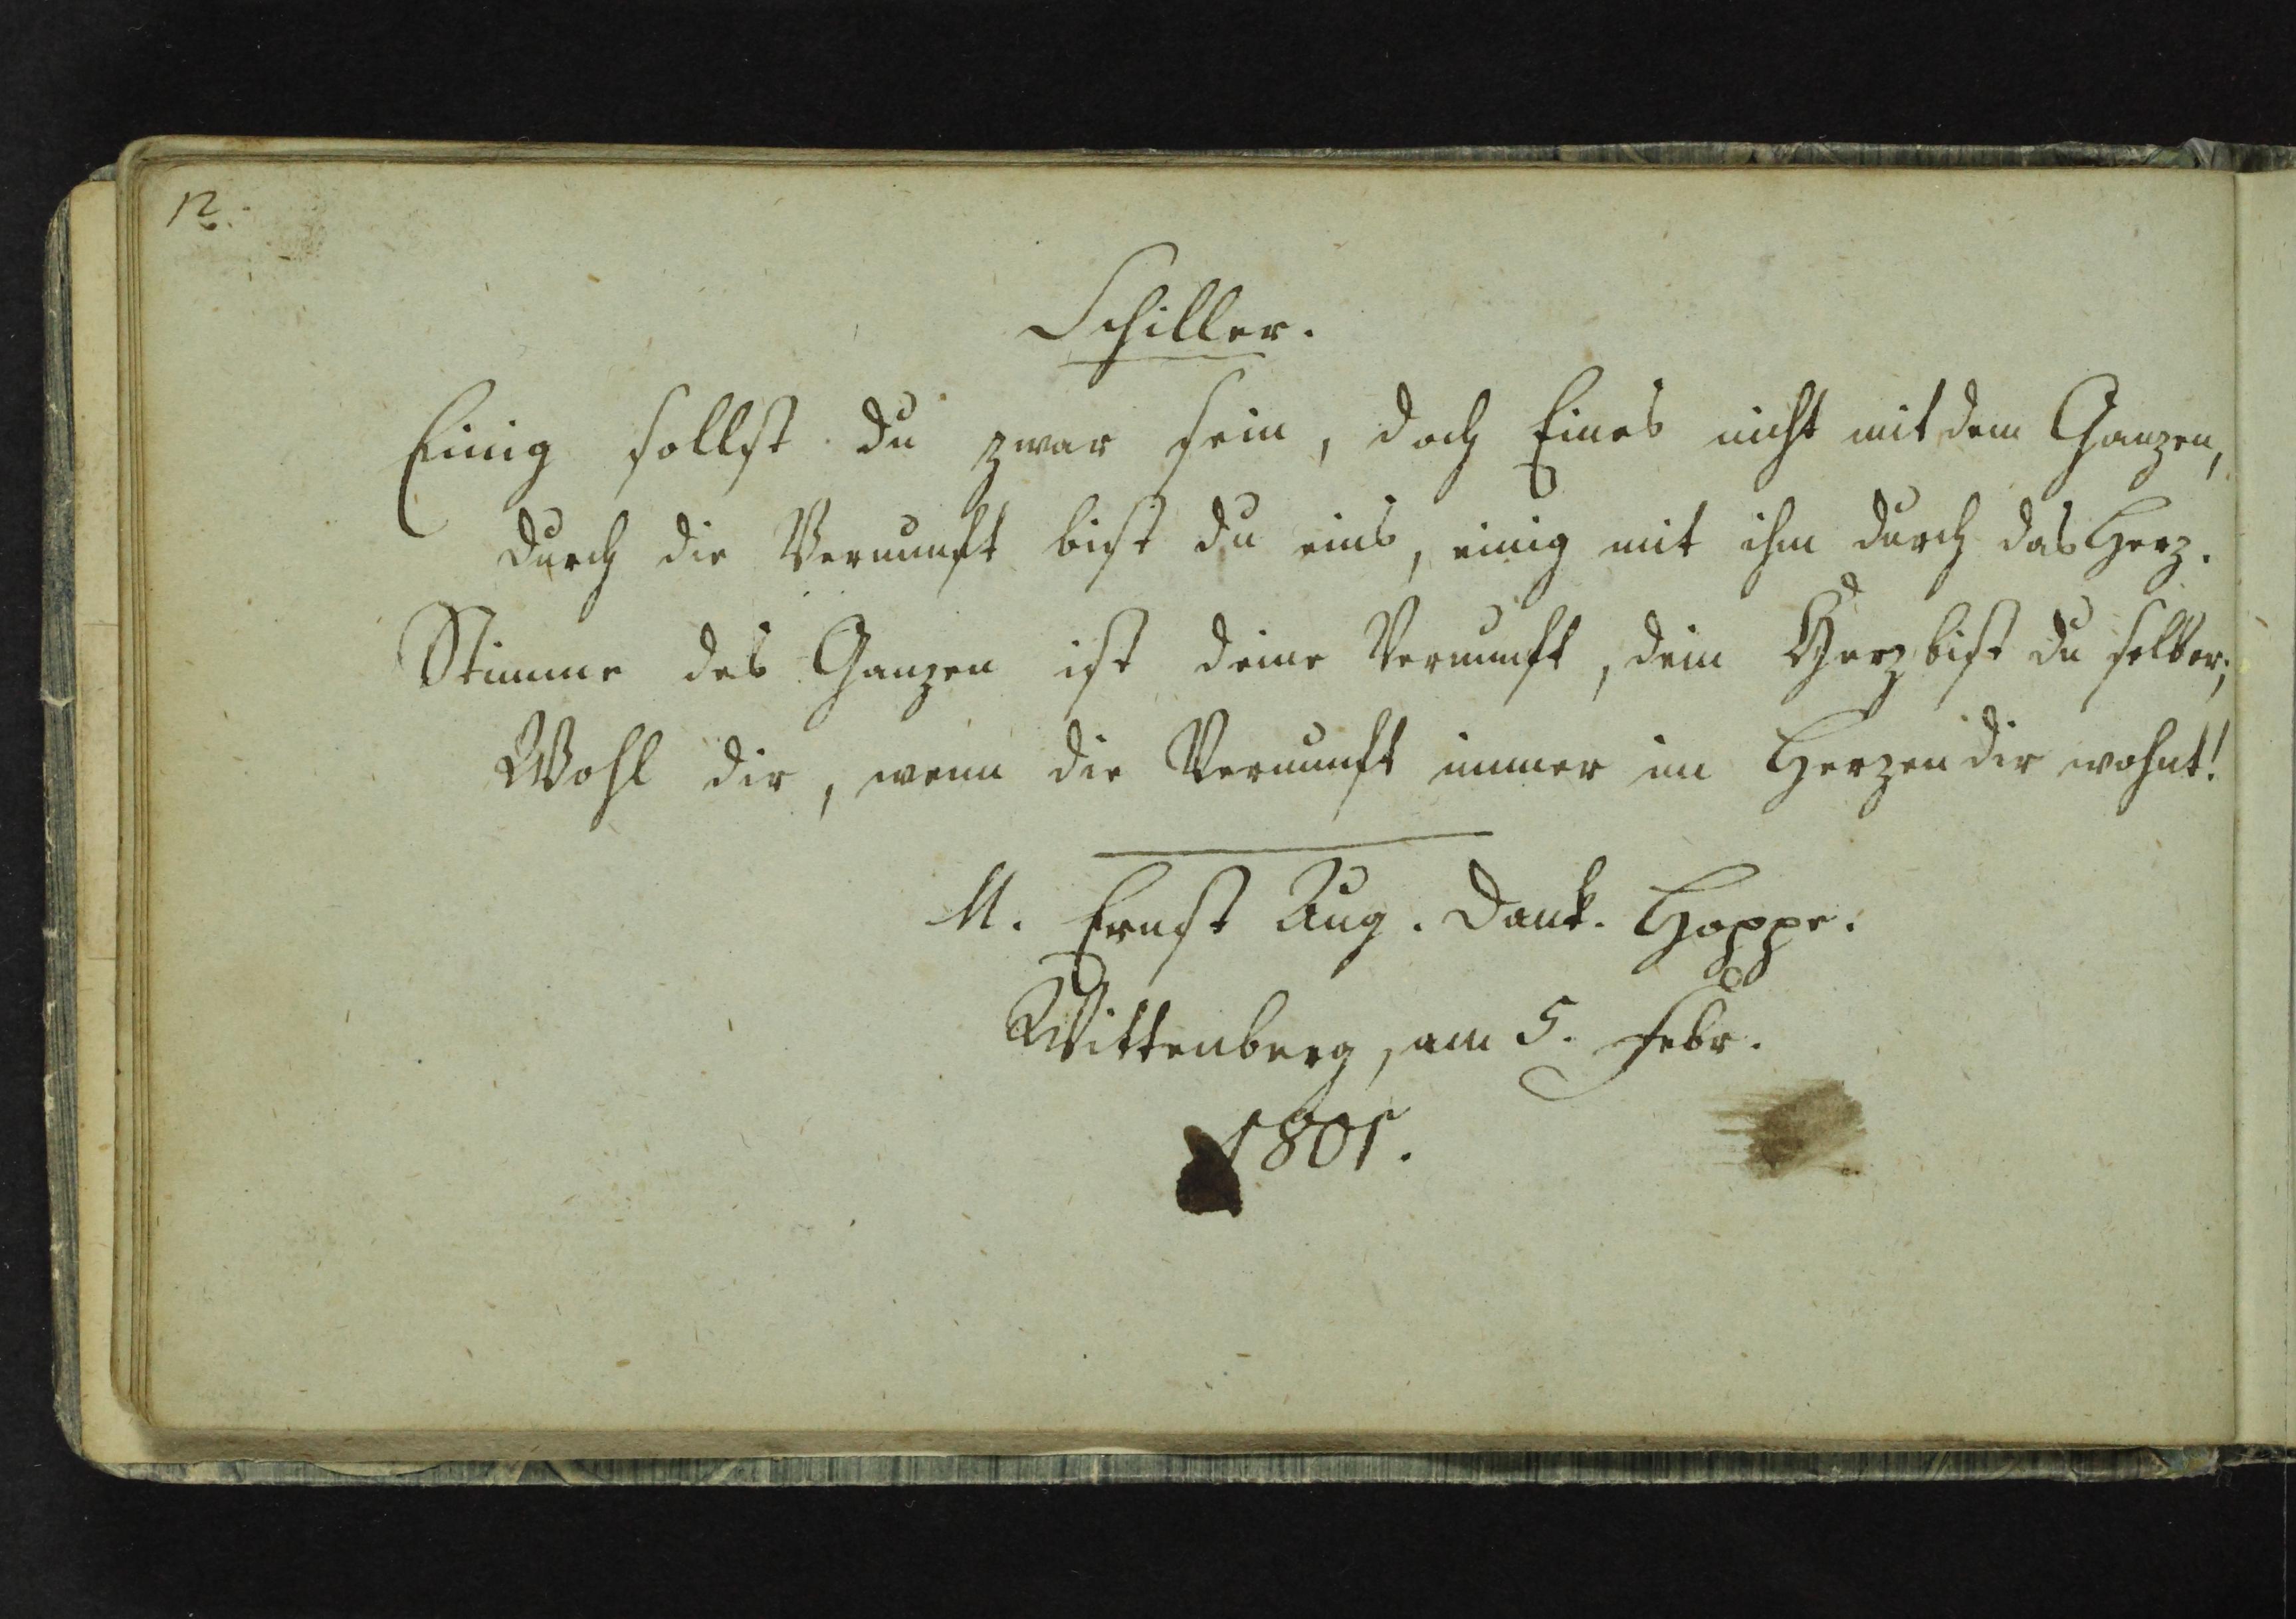 12.
Schiller.
Einig sollst du zwar sein, doch Eines nicht mit dem Ganzen,
durch die Vernunft bist du eins, einig mit ihm durch das Herz.
Stimme des Ganzen ist deine Vernunft, dein Herz bist du selber;
Wohl dir, wenn die Vernunft immer im Herzen dir wohnt!
M. Ernst Aug. Dank. Hoppe.
Wittenberg, am 5. Febr.
1801.